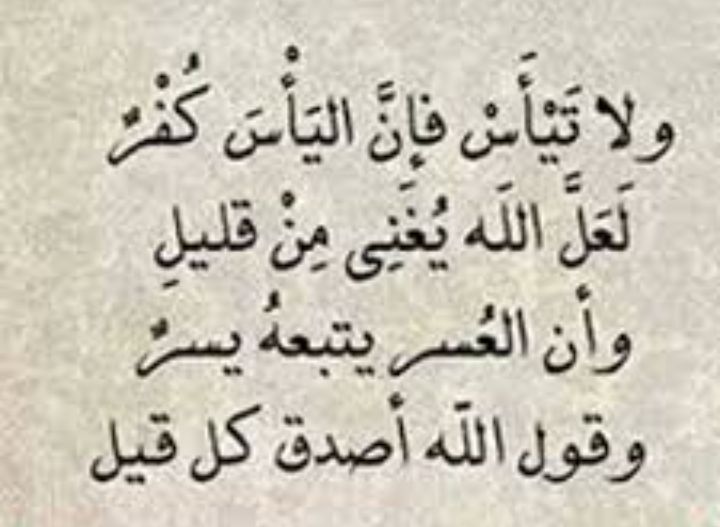 ولا تَيْأَسْ فإنَّ اليَأْسَ كُفْرٌ
لَعَلَّ اللَه يُغَنِى مِنْ قليلِ
وأن العُسر يتبعهُ يسرٌ
وقول اللّه أصدق كل قيل